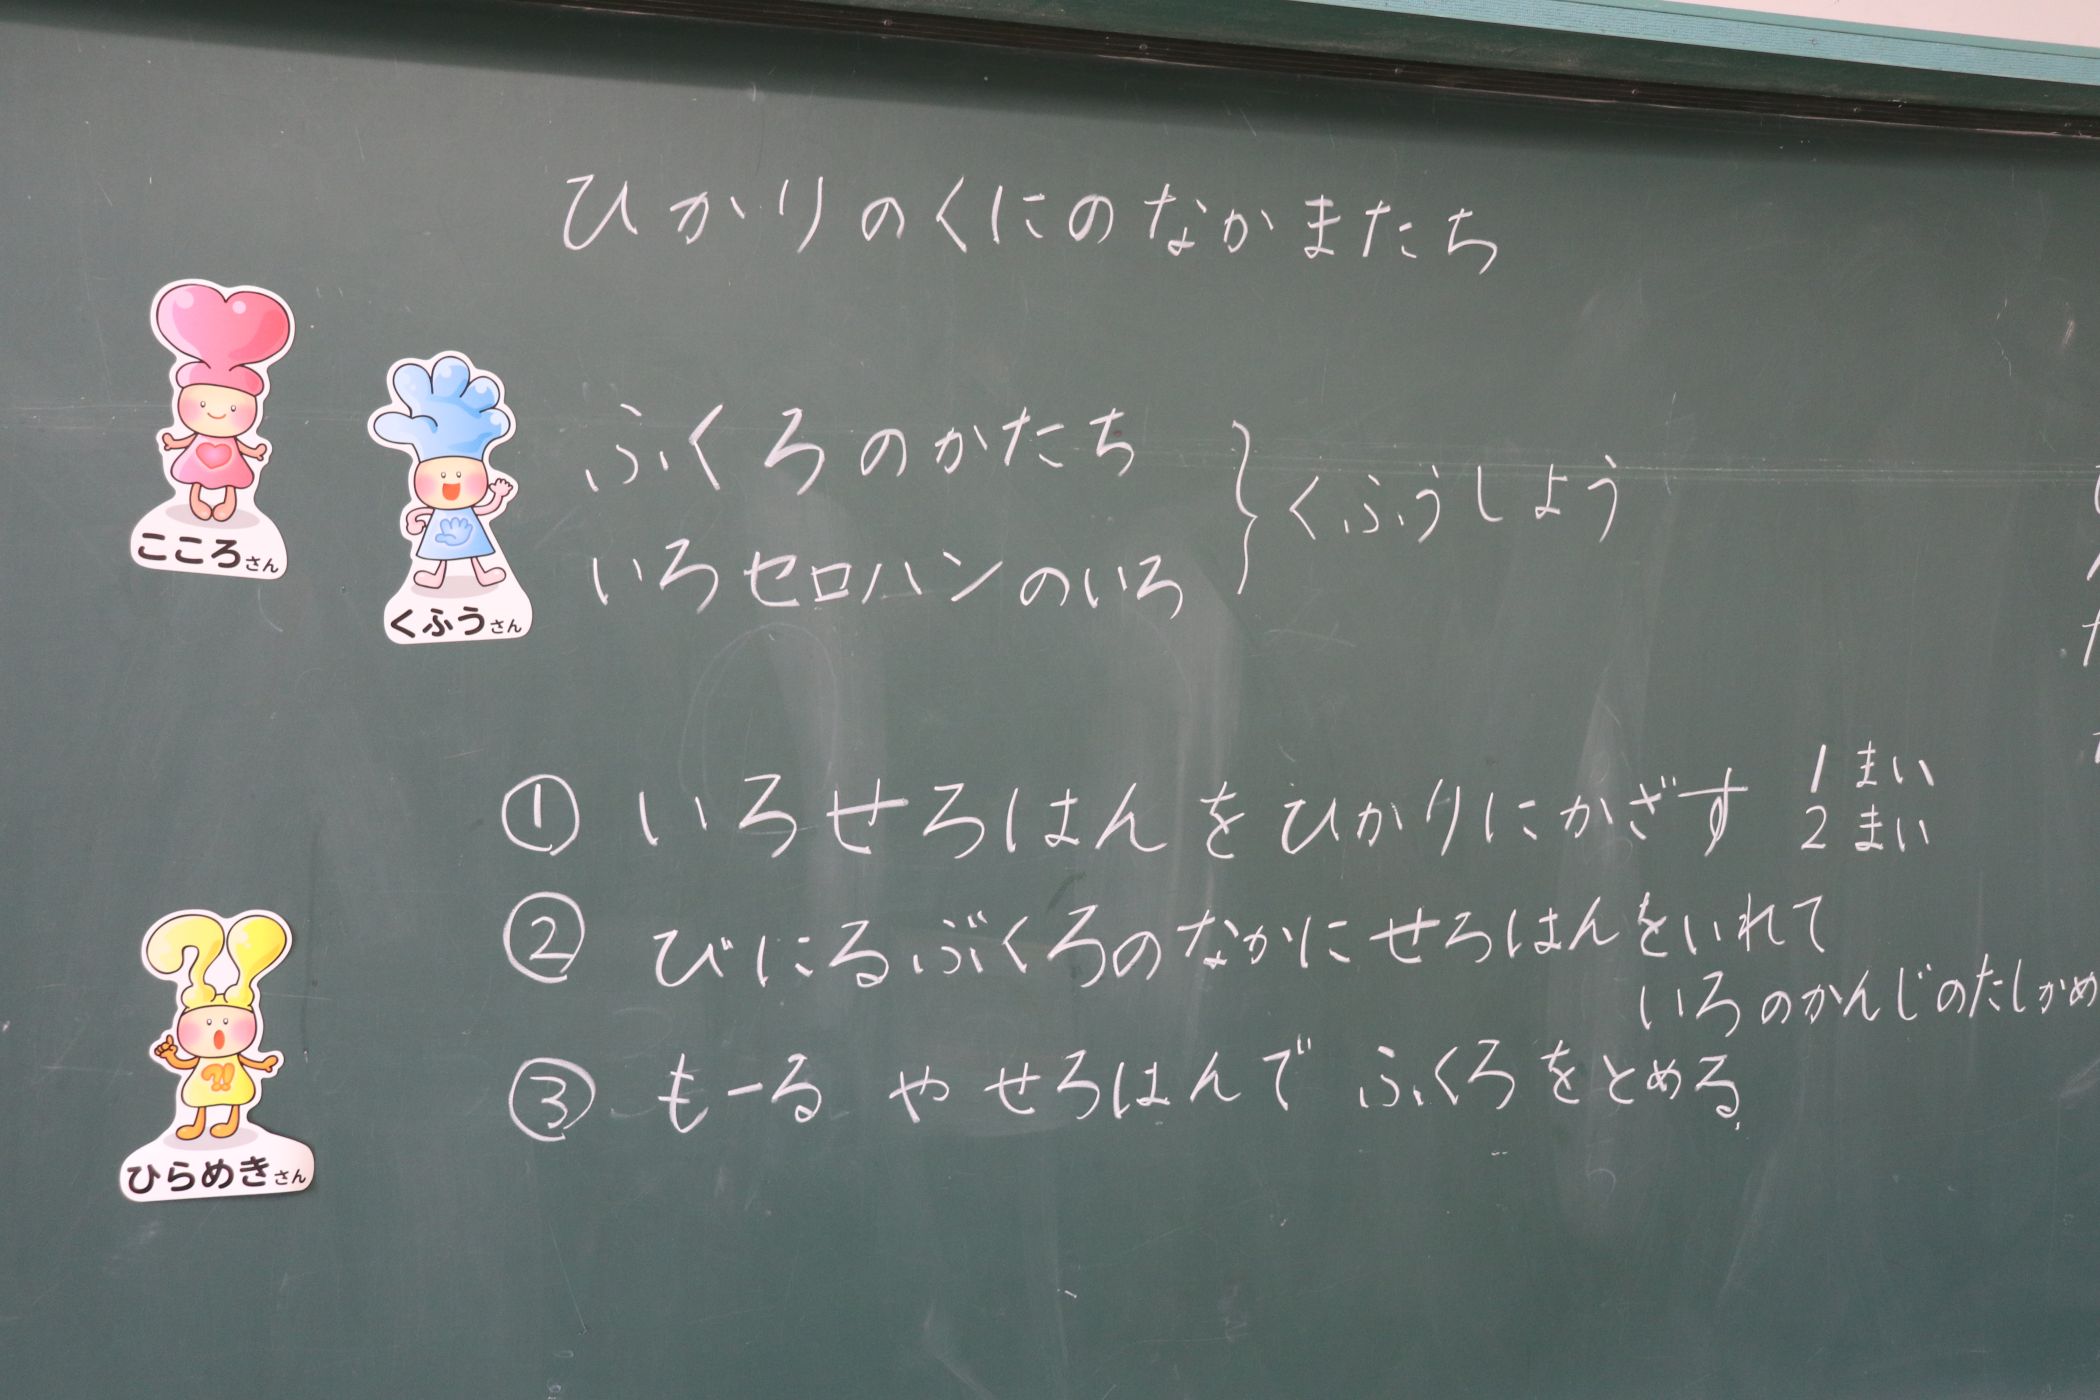 ひかりのくにのなかまたち
ふくろのかたち
いろセロハンのいろ
くふうしよう
こころさん
くふうさん
① いろせろはんをひかりにかざす 1まい
2まい
② びにるぶくろのなかにせろはんをいれて
いろのかんじのたしかめ
③ もーる や せろはんで ふくろをとめる
ひらめきさん